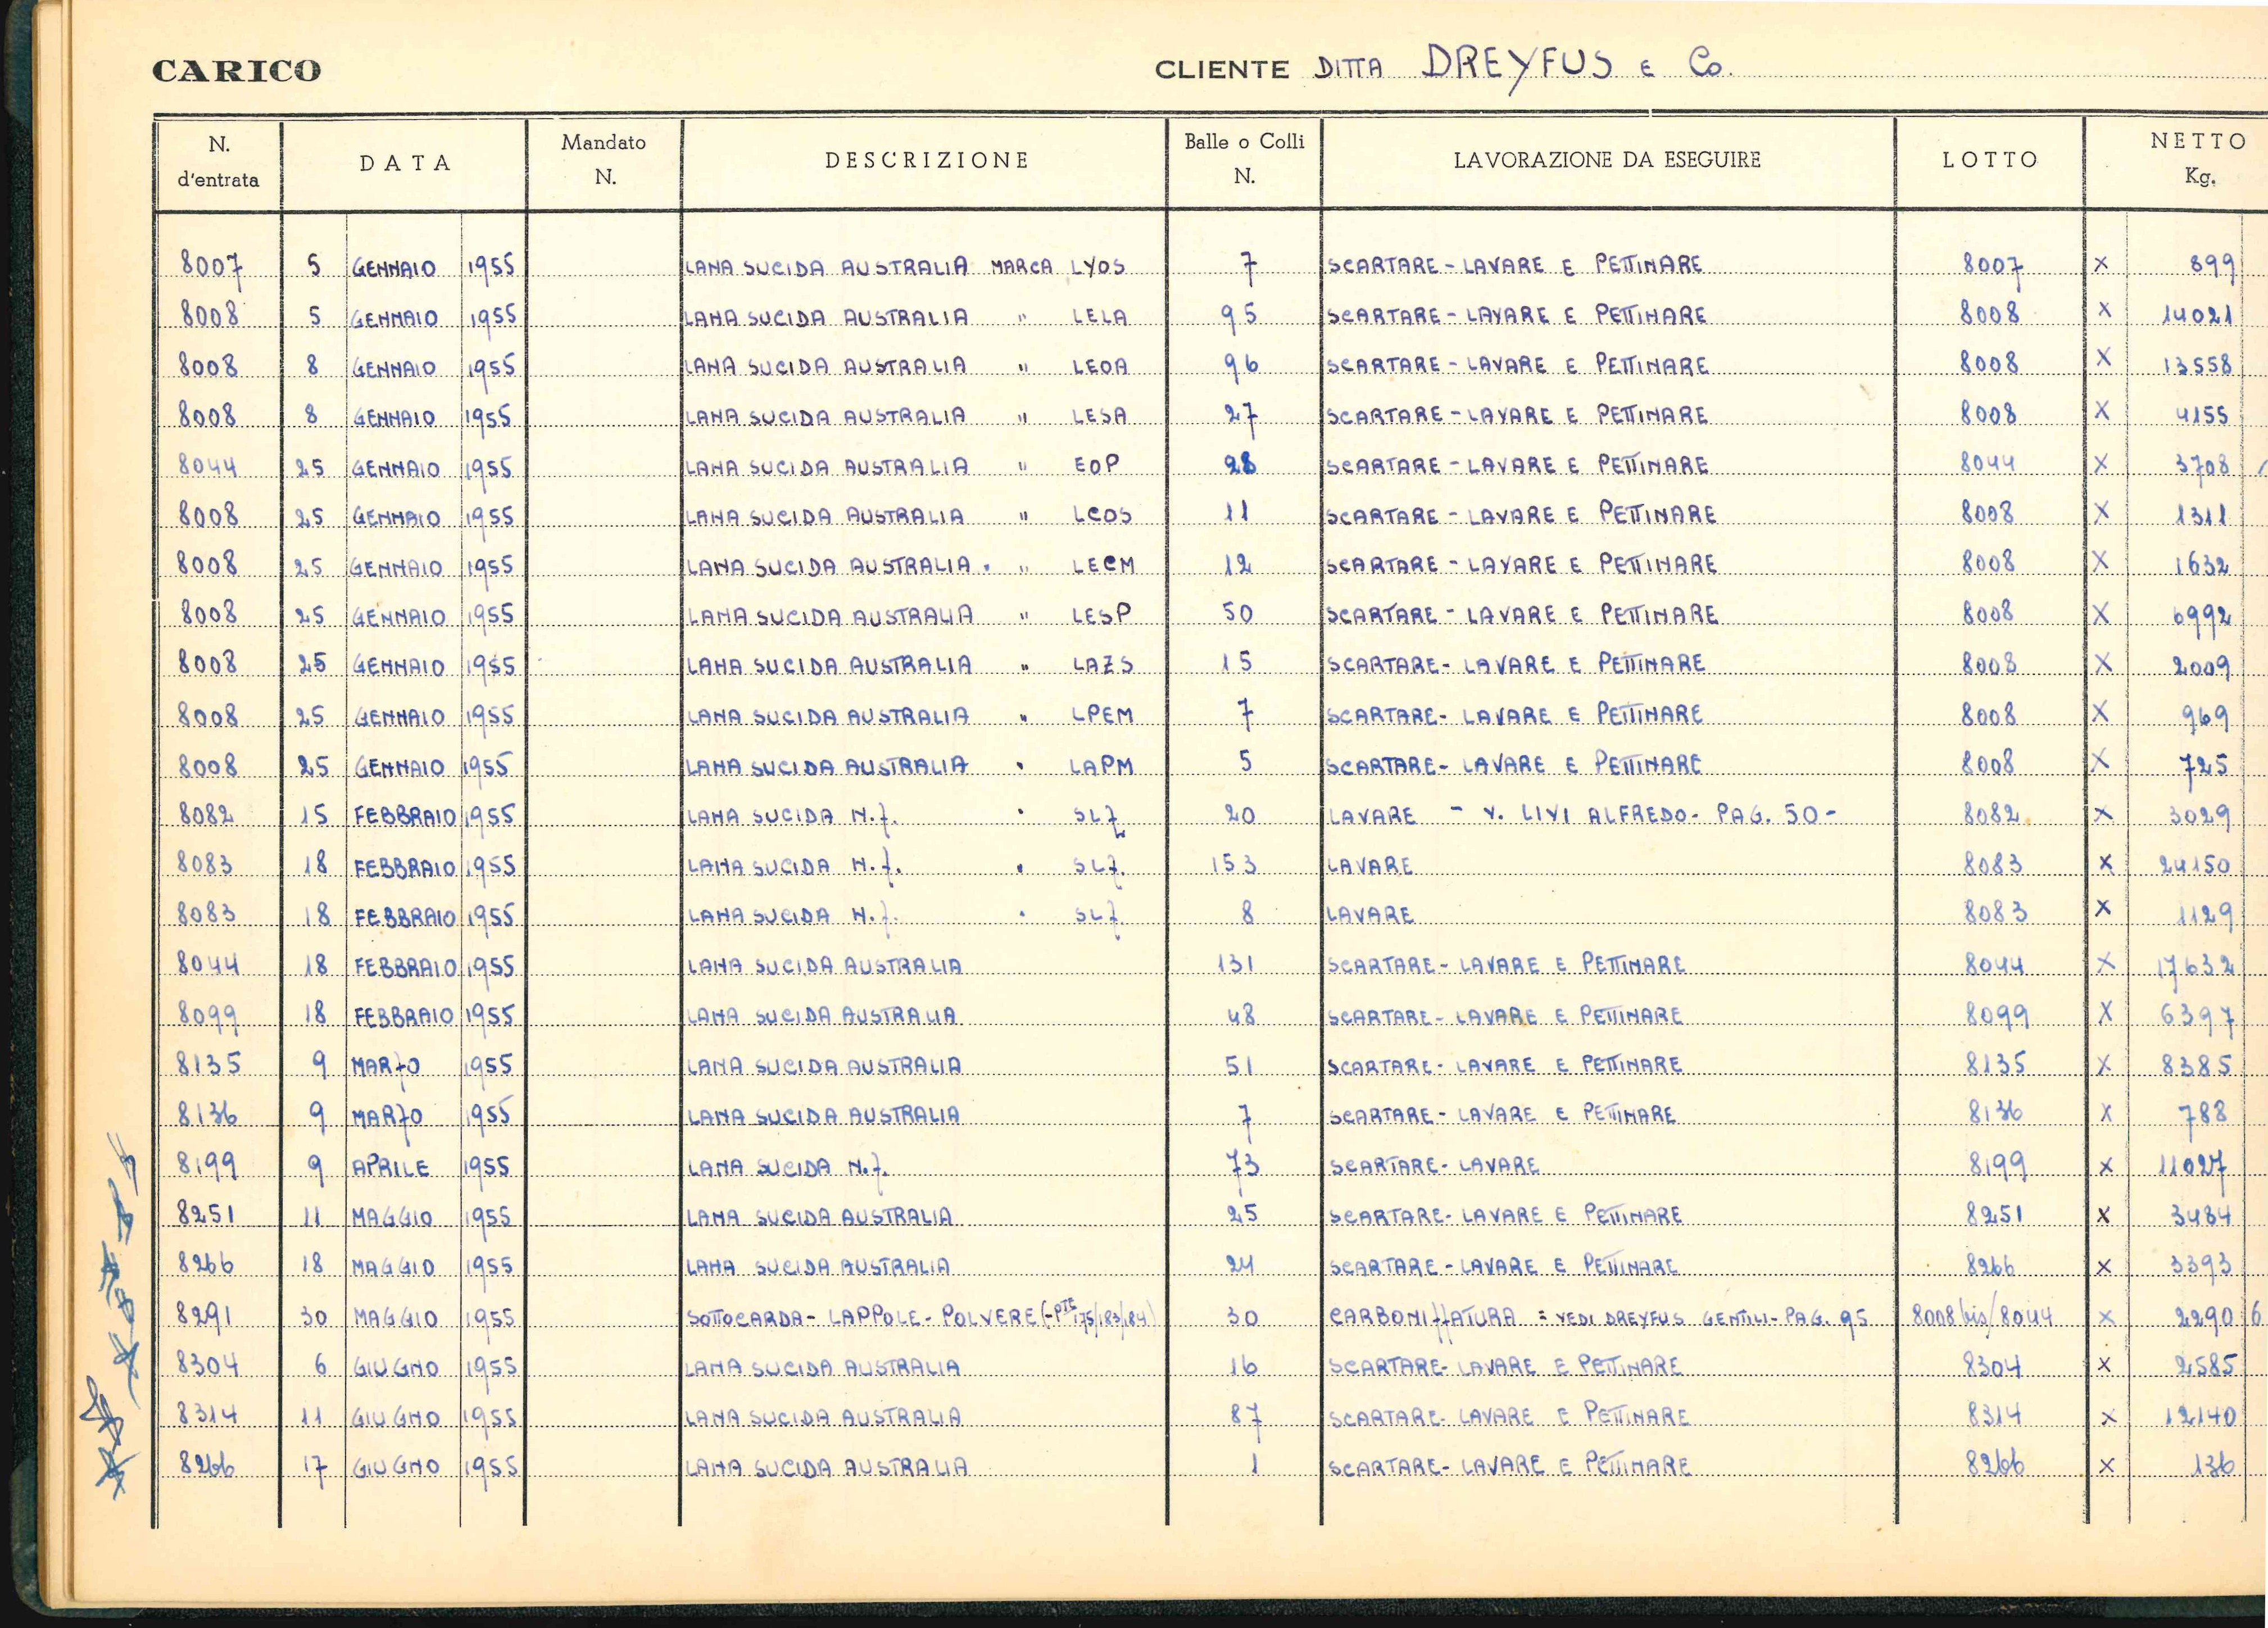 CARICO CLIENTE DITTA DREYFUS E Co.
N. d'entrata DATA Mandato N. DESCRIZIONE Balle o Colli N. LAVORAZIONE DA ESEGUIRE LOTTO NETTO Kg.
8007 5 GENNAIO 1955 LANA SUCIDA AUSTRALIA MARCA LYOS 7 SCARTARE - LAVARE E PETTINARE 8007 X 899
8008 5 GENNAIO 1955 LANA SUCIDA AUSTRALIA " LELA 95 SCARTARE - LAVARE E PETTINARE 8008 X 14021
8008 8 GENNAIO 1955 LANA SUCIDA AUSTRALIA " LEOA 96 SCARTARE - LAVARE E PETTINARE 8008 X 13558
8008 8 GENNAIO 1955 LANA SUCIDA AUSTRALIA " LESA 27 SCARTARE - LAVARE E PETTINARE 8008 X 4155
8044 25 GENNAIO 1955 LANA SUCIDA AUSTRALIA " EOP 28 SCARTARE - LAVARE E PETTINARE 8044 X 3708
8008 25 GENNAIO 1955 LANA SUCIDA AUSTRALIA " LCOS 11 SCARTARE - LAVARE E PETTINARE 8008 X 1311
8008 25 GENNAIO 1955 LANA SUCIDA AUSTRALIA . " LECM 12 SCARTARE - LAVARE E PETTINARE 8008 X 1632
8008 25 GENNAIO 1955 LANA SUCIDA AUSTRALIA " LESP 50 SCARTARE - LAVARE E PETTINARE 8008 X 6992
8008 25 GENNAIO 1955 LANA SUCIDA AUSTRALIA " LAZS 15 SCARTARE - LAVARE E PETTINARE 8008 X 2009
8008 25 GENNAIO 1955 LANA SUCIDA AUSTRALIA " LPEM 7 SCARTARE - LAVARE E PETTINARE 8008 X 969
8008 25 GENNAIO 1955 LANA SUCIDA AUSTRALIA " LAPM 5 SCARTARE - LAVARE E PETTINARE 8008 X 725
8082 15 FEBBRAIO 1955 LANA SUCIDA N.Z. " SLZ 20 LAVARE - V. LIVI ALFREDO - PAG. 50 - 8082 X 3029
8083 18 FEBBRAIO 1955 LANA SUCIDA N.Z. " SLZ. 153 LAVARE 8083 X 24150
8083 18 FEBBRAIO 1955 LANA SUCIDA N.Z. " SLZ 8 LAVARE 8083 X 1129
8044 18 FEBBRAIO 1955 LANA SUCIDA AUSTRALIA 131 SCARTARE - LAVARE E PETTINARE 8044 X 17632
8099 18 FEBBRAIO 1955 LANA SUCIDA AUSTRALIA 48 SCARTARE - LAVARE E PETTINARE 8099 X 6397
8135 9 MARZO 1955 LANA SUCIDA AUSTRALIA 51 SCARTARE - LAVARE E PETTINARE 8135 X 8385
8136 9 MARZO 1955 LANA SUCIDA AUSTRALIA 7 SCARTARE - LAVARE E PETTINARE 8136 X 788
8199 9 APRILE 1955 LANA SUCIDA N.Z. 73 SCARTARE - LAVARE 8199 X 11027
8251 11 MAGGIO 1955 LANA SUCIDA AUSTRALIA 25 SCARTARE - LAVARE E PETTINARE 8251 X 3484
8266 18 MAGGIO 1955 LANA SUCIDA AUSTRALIA 24 SCARTARE - LAVARE E PETTINARE 8266 X 3393
8291 30 MAGGIO 1955 SOTTOCARDA - LAPPOLE - POLVERE (-PTE 175/183/184) 30 CARBONIZZATURA = VEDI DREYFUS GENTILI - PAG. 95 8008 bis/8044 X 2290 6
8304 6 GIUGNO 1955 LANA SUCIDA AUSTRALIA 16 SCARTARE - LAVARE E PETTINARE 8304 X 2585
8314 11 GIUGNO 1955 LANA SUCIDA AUSTRALIA 87 SCARTARE - LAVARE E PETTINARE 8314 X 12140
8266 17 GIUGNO 1955 LANA SUCIDA AUSTRALIA 1 SCARTARE - LAVARE E PETTINARE 8266 X 136